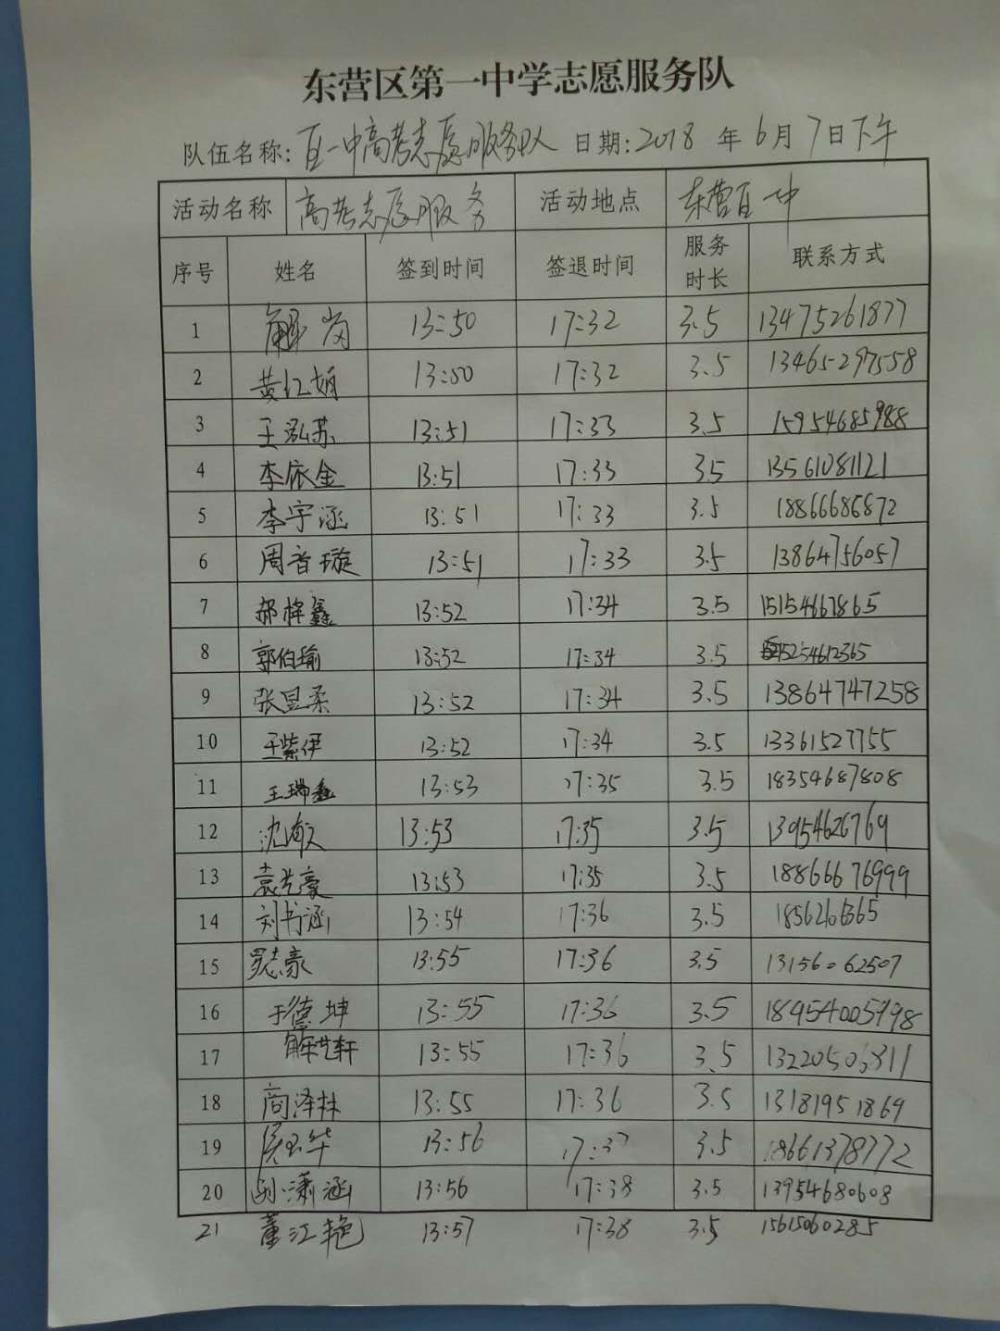 东营区第一中学志愿服务队
队伍名称:区一中高考志愿服务队 日期:2018 年 6月 7日下午
活动名称 高考志愿服务 活动地点 东营区一中
序号 姓名 签到时间 签退时间 服务时长 联系方式
1 解岗 13:50 17:32 3.5 13475261877
2 黄红娟 13:50 17:32 3.5 13465297558
3 王泓苏 13:51 17:33 3.5 15954685988
4 李依金 13:51 17:33 3.5 13561081121
5 李宇涵 13:51 17:33 3.5 18866686872
6 周音璇 13:51 17:33 3.5 13864756057
7 郝梓鑫 13:52 17:34 3.5 15154667865
8 郭伯瑜 13:52 17:34 3.5 15254612365
9 张昱柔 13:52 17:34 3.5 13864747258
10 王紫伊 13:52 17:34 3.5 13361527755
11 王瑞鑫 13:53 17:35 3.5 18354687808
12 沈 13:53 17:35 3.5 13954626769
13 袁艺豪 13:53 17:35 3.5 18866676999
14 刘书涵 13:54 17:36 3.5
15 13:55 17:36 3.5 13156062507
16 于德坤 13:55 17:36 3.5 18954005998
17 解世轩 13:55 17:36 3.5 13220506311
18 商泽林 13:55 17:36 3.5 13181951869
19 侯玉华 13:56 17:37 3.5 18661378772
20 潇涵 13:56 17:38 3.5 13954680608
21 董江艳 13:57 17:38 3.5 15615060285